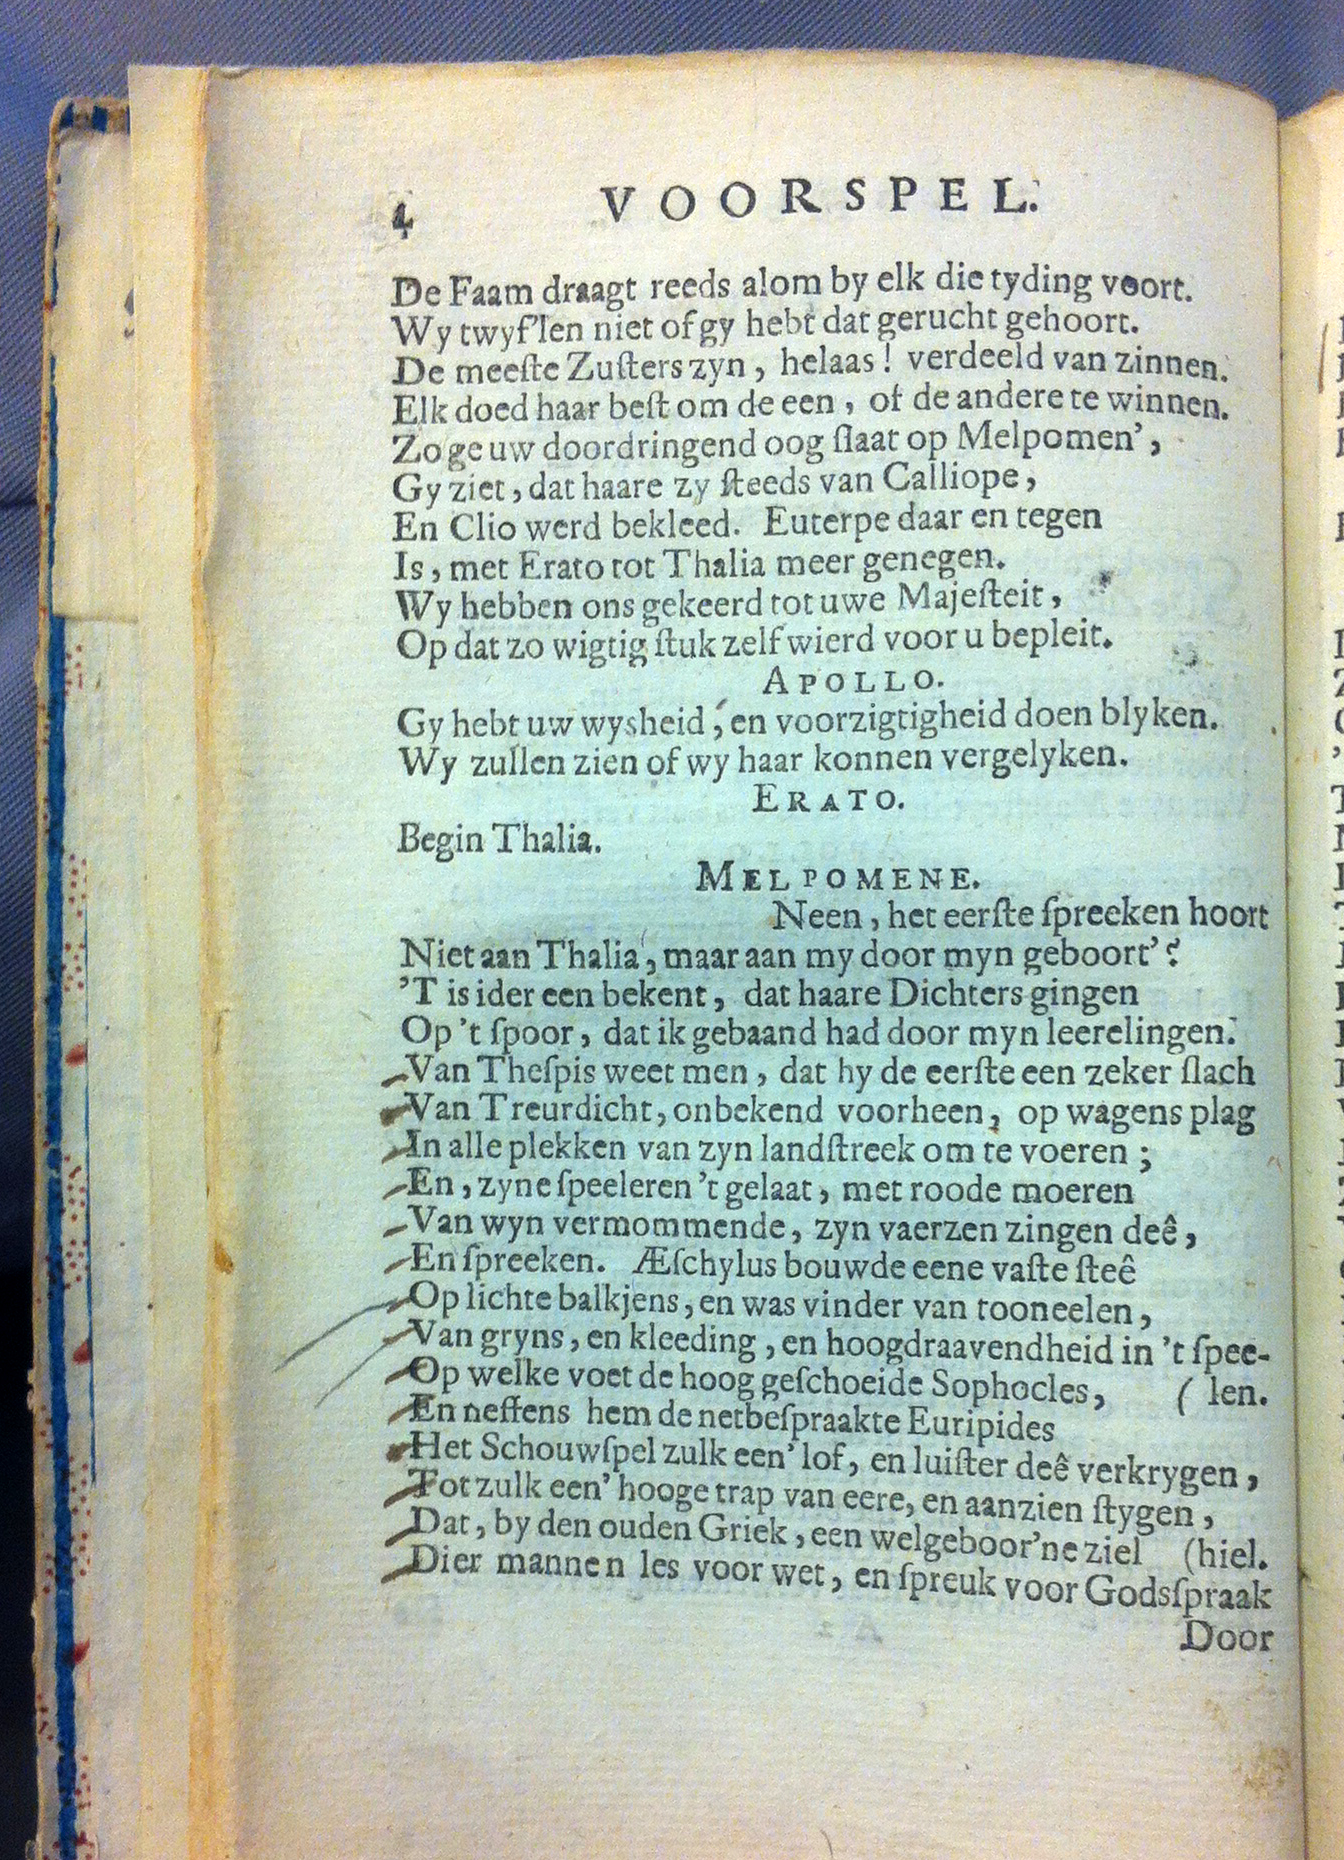 4 VOORSPEL.
De Faam draagt reeds alom by elk die tyding voort.
Wy twyf'len niet of gy hebt dat gerucht gehoort.
De meeſte Zuſters zyn, helaas! verdeeld van zinnen.
Elk doed haar beſt om de een, of de andere te winnen.
Zo ge uw doordringend oog ſlaat op Melpomen',
Gy ziet, dat haare zy ſteeds van Calliope,
En Clio werd bekleed. Euterpe daar en tegen
Is, met Erato tot Thalia meer genegen.
Wy hebben ons gekeerd tot uwe Majeſteit,
Op dat zo wigtig ſtuk zelf wierd voor u bepleit.
APOLLO.
Gy hebt uw wysheid, en voorzigtigheid doen blyken.
Wy zullen zien of wy haar konnen vergelyken.
ERATO.
Begin Thalia.
MELPOMENE.
Neen, het eerſte ſpreeken hoort
Niet aan Thalia, maar aan my door myn geboort'.
'T is ider een bekent, dat haare Dichters gingen
Op 't ſpoor, dat ik gebaand had door myn leerelingen.
Van Theſpis weet men, dat hy de eerſte een zeker ſlach
Van Treurdicht, onbekend voorheen, op wagens plag
In alle plekken van zyn landſtreek om te voeren;
En, zyne ſpeeleren 't gelaat, met roode moeren
Van wyn vermommende, zyn vaerzen zingen deê,
En ſpreeken. Æſchylus bouwde eene vaſte ſteê
Op lichte balkjens, en was vinder van tooneelen,
Van gryns, en kleeding, en hoogdraavendheid in 't ſpee-
Op welke voet de hoog geſchoeide Sophocles, (len.
En neffens hem de netbeſpraakte Euripides
Het Schouwſpel zulk een' lof, en luiſter deê verkrygen,
Tot zulk een' hooge trap van eere, en aanzien ſtygen,
Dat, by den ouden Griek, een welgeboor'ne ziel (hiel.
Dier mannen les voor wet, en ſpreuk voor Godsſpraak
Door